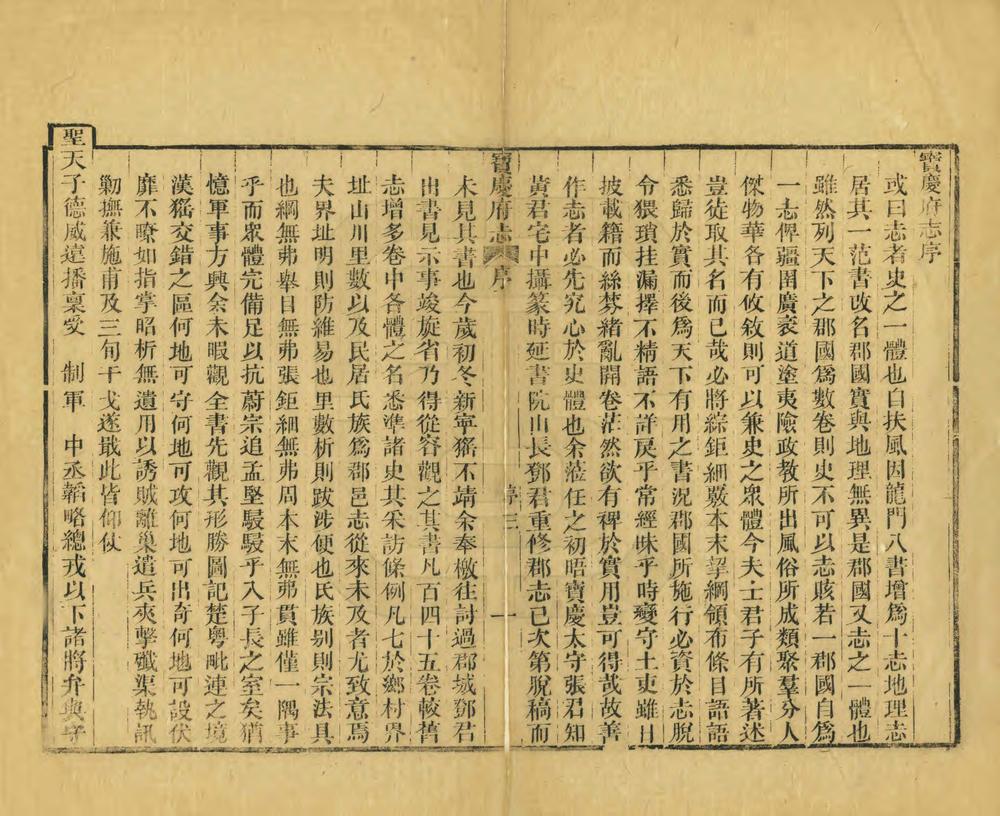 寶慶府志序
或曰志者史之一體也自扶風因龍門八書增爲十志地理志
居其一范書改名郡國實與地理無異是郡國又志之一體也
雖然列天下之郡國爲數卷則史不可以志賅若一郡國自爲
一志俾疆圉廣袤道塗夷險政教所出風俗所成類聚羣分人
傑物華各有攸敘則可以兼史之衆體今夫士君子有所著述
豈徒取其名而已哉必將綜鉅細覈本末挈綱領布條目語語
悉歸於實而後爲天下有用之書況郡國所施行必資於志脫
令猥瑣挂漏擇不精語不詳戾乎常經昧乎時變守土吏雖日
披載籍而絲棼緒亂開卷茫然欲有裨於實用豈可得哉故善
作志者必先究心於史體也余蒞任之初晤寶慶太守張君知
黃君宅中攝篆時延書院山長鄧君重修郡志已次第脫稿而
寶慶府志 序
序三
一
未見其書也今歲初冬新寧猺不靖余奉檄往討過郡城鄧君
出書見示事竣旋省乃得從容觀之其書凡百四十五卷較舊
志增多卷中各體之名悉準諸史其采訪條例凡七於鄉村界
址山川里數以及民居氏族爲郡邑志從來未及者尤致意焉
夫界址明則防維易也里數析則跋涉便也氏族别則宗法具
也綱無弗舉目無弗張鉅細無弗周本末無弗貫雖僅一隅事
乎而衆體完備足以抗蔚宗追孟堅駸駸乎入子長之室矣猶
憶軍事方興余未暇觀全書先觀其形勝圖記楚粵毗連之境
漢猺交錯之區何地可守何地可攻何地可出奇何地可設伏
靡不瞭如指掌昭析無遺用以誘賊離巢遣兵夾擊殲渠執訊
勦撫兼施甫及三旬干戈遂戢此皆仰仗
聖天子德威遠播稟受 制軍 中丞韜略總戎以下諸將弁與守